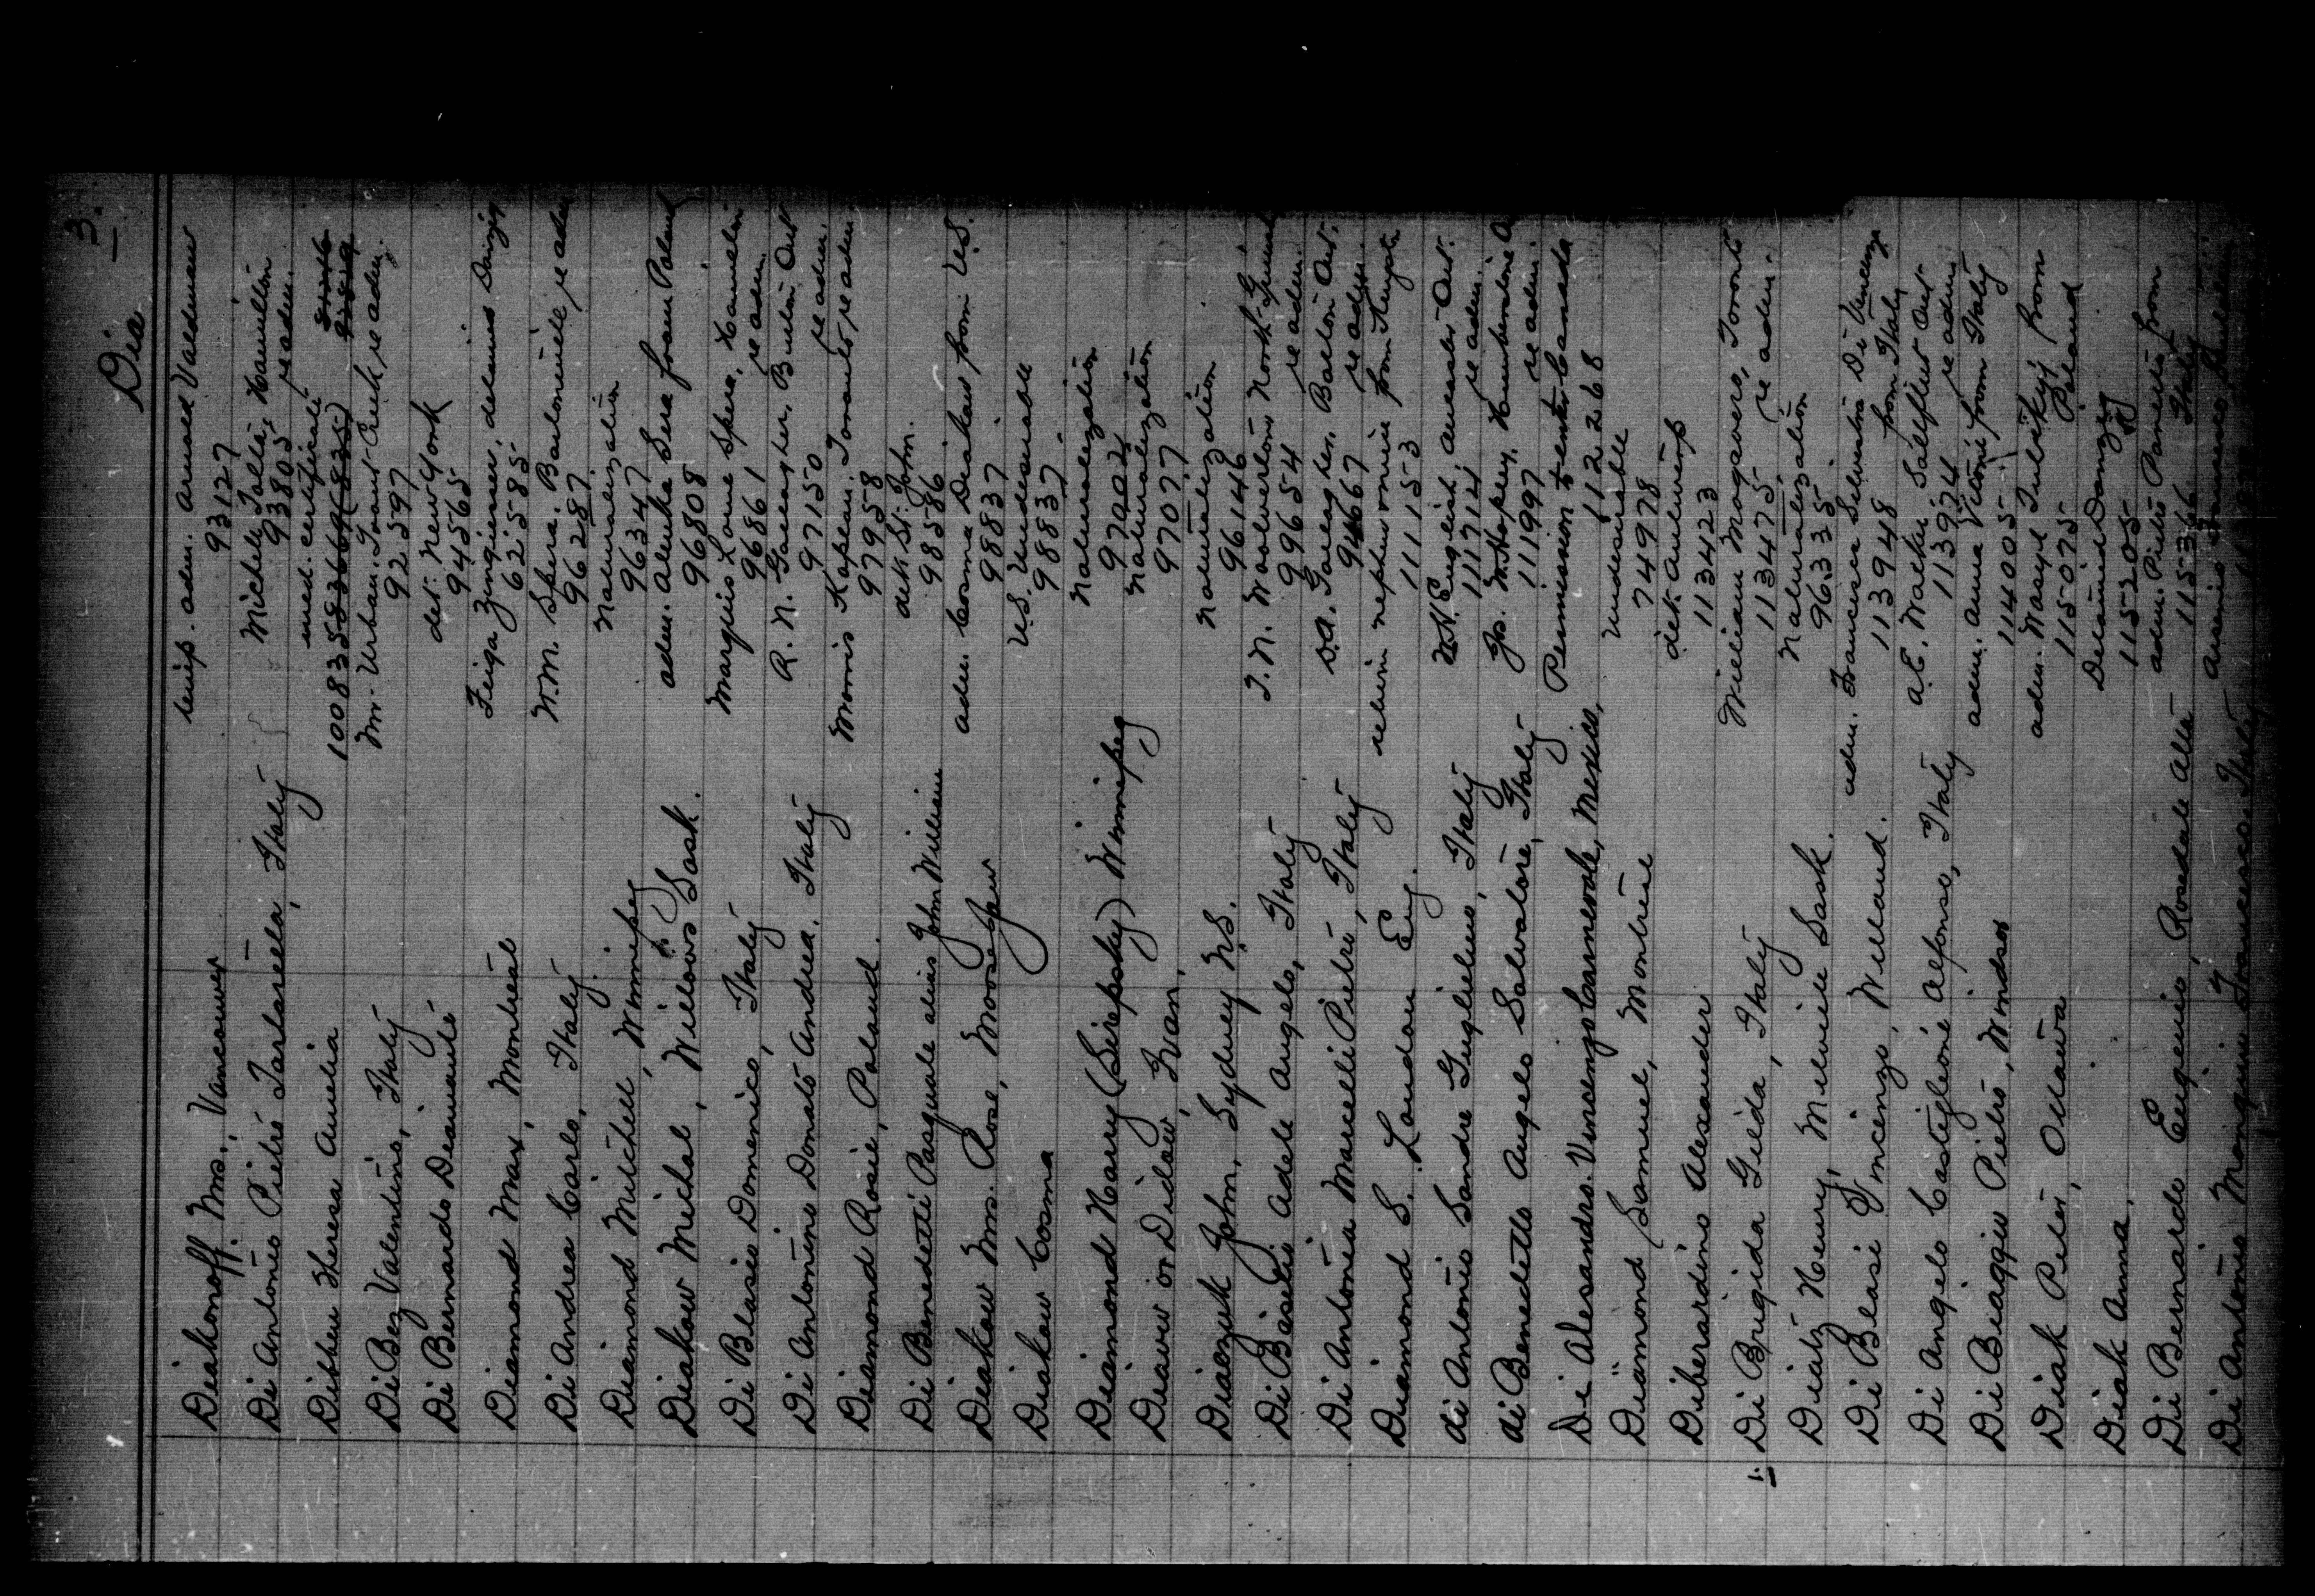 3.
Dia
Diakonoff. Mrs., Vancouver temp. adm. Arnold Valdman
93127
Di Antonio Pietro Tartarella, Italy Michele Tolla, Hamilton
93805 re adm.
Dibben Theresa Amelia med. certificate
100835836696835
Di Bez Valentino, Italy Mr. Urban. Trout Creek re adm.
92597
Di Bernardo Diamante det. New York
94565
Diamond Max, Montreal Feiga detained Danzig
62585
Di Andrea Carlo, Italy W.M. Spera. re adm
96287
Diamond Mitchell, Winnipeg Naturalization
96347
Diakow Michal, Willows Sask. adm. Alenka Sera from Poland
96808
Di Blasio Domenico, Italy Marquis Lome Spera, Hamilton
96861 re adm.
Di Antonino Donato Andrea, Italy R. N. Gallagher, Burton Ont
97150 re adm.
Diamond Rosie, Poland. Morris Kaplan, Toronto re adm.
97958
Di Benedetti Pasquale alias John William det. St. John.
98586
Diakow Mrs. Rose, Moose Jaw adm. Cosma Diakow from U.S.
98837
Diakow Cosma U.S. Undesirable
98837
Diamond Harry (Sirepsky) Winnipeg Naturalization
97002
Diaww or Didaw, Ivan, Naturalization
97077
Diaczuk John, Sydney N.S. Naturalization
96146
Di Basilio Adele Angelo, Italy T. N. Woolverton North
99654 re adm.
Di Antonia Marcelli Pietro, Italy D.A. Gallagher, Barton Ont.
94667 re adm.
Diamond S. London Eng. return nephews movie from
111153
di Antonio Sandre Guglielmo, Italy English, Ancaster Ont.
111714 re adm.
di Benedetto Angelo Salvatore, Italy Jos. Hopley, Humberstone O
111997 re adm.
Di Alesandro Vincenzo Carnevale, Mexico, Permission to enter Canada
112268
Diamond Samuel, Montreal Undesirable
74978
Diberardino Alexander det. Antwerp
113423
Di Brigida Gilda, Italy William Mogavero, Toronto
113475 re adm.
Diatz Henry, Melville Sask. Naturalization
96335
Di Blasi Vincenzo, Welland. adm. Francesca Silvestro Di Vincenzo
113948 from Italy
Di Angelo Castiglione Alfonso, Italy A.E. Walker Saltfleet Ont
113974 re adm
Di Biaggio Pietro, Windsor adm. Anna Vittoni from Italy
114005
Diak Peter, Ottawa adm. Wasyl from
115075 Poland
Diak Anna, Detained Danzig
115205
Di Bernardo Eugenio, Rosedale Alta adm. Pietro Panetta from
115366 Italy
Di Antonio Francesco, Italy